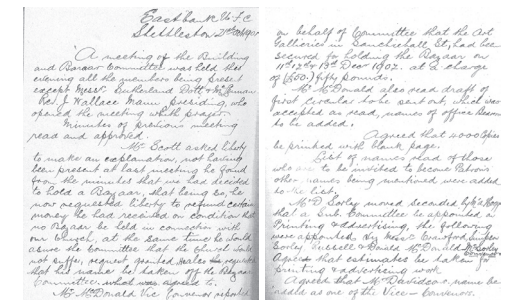 Eastbank U.F.C
Shettleston
A meeting of the Building
and Bazaar Committee was held this
evening all the members being present
except Messrs Sutherland Dott &
Rev J. Wallace Mann presiding, who
opened the meeting with prayer.
Minutes of previous meeting
read and approved.
Mr. Scott asked liberty
to make an explanation, not having
been present at last meeting he found
from the minutes that we had decided
to hold a Bazaar, that being so, he
now requested liberty to refund certain
money he had received on condition that
no Bazaar be held in connection with
our Church, at the same time he would
assure the Committee that the Church would
not suffer, request granted. He also requested
that his name be taken off the Bazaar
Committee, which was agreed to.
Mr McDonald Vice Convener reported
on behalf of Committee that the Art
Galleries in Sauchiehall St, had been
secured for holding the Bazaar on
11th 12th & 13th Decr 1902. at a charge
of (£50.) fifty pounds.
Mr. McDonald also read draft of
first circular to be sent out, which was
accepted as read, names of office
to be added.
Agreed that 2000 copies
be printed with blank page.
List of names read of those
who are to be invited to become Patrons
other names being mentioned were added
to the list.
Mr D Sorley moved seconded by
that a Sub Committee be appointed on
Printing & advertising, the following
were appointed, Crawford,
Sorley Russell & Donald McDonald Mr Sorley
Convener
Agreed that estimates be taken for
printing & advertising work
Agreed that Mr Davidson's name be
added as one of the Vice-Conveners.